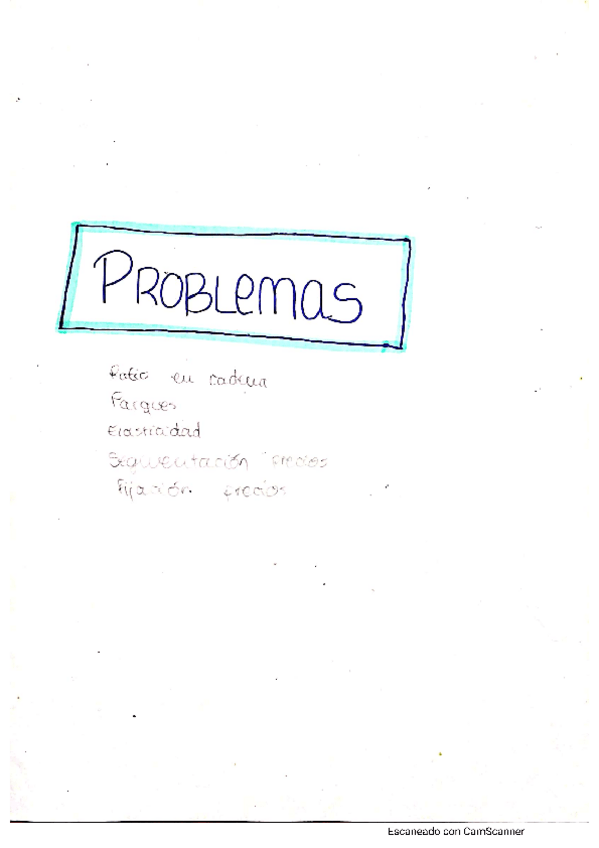 PROBLEMAS
Ratio en cadena
Parques
Elasticidad
Segmentación precios
Fijación precios
Escaneado con CamScanner